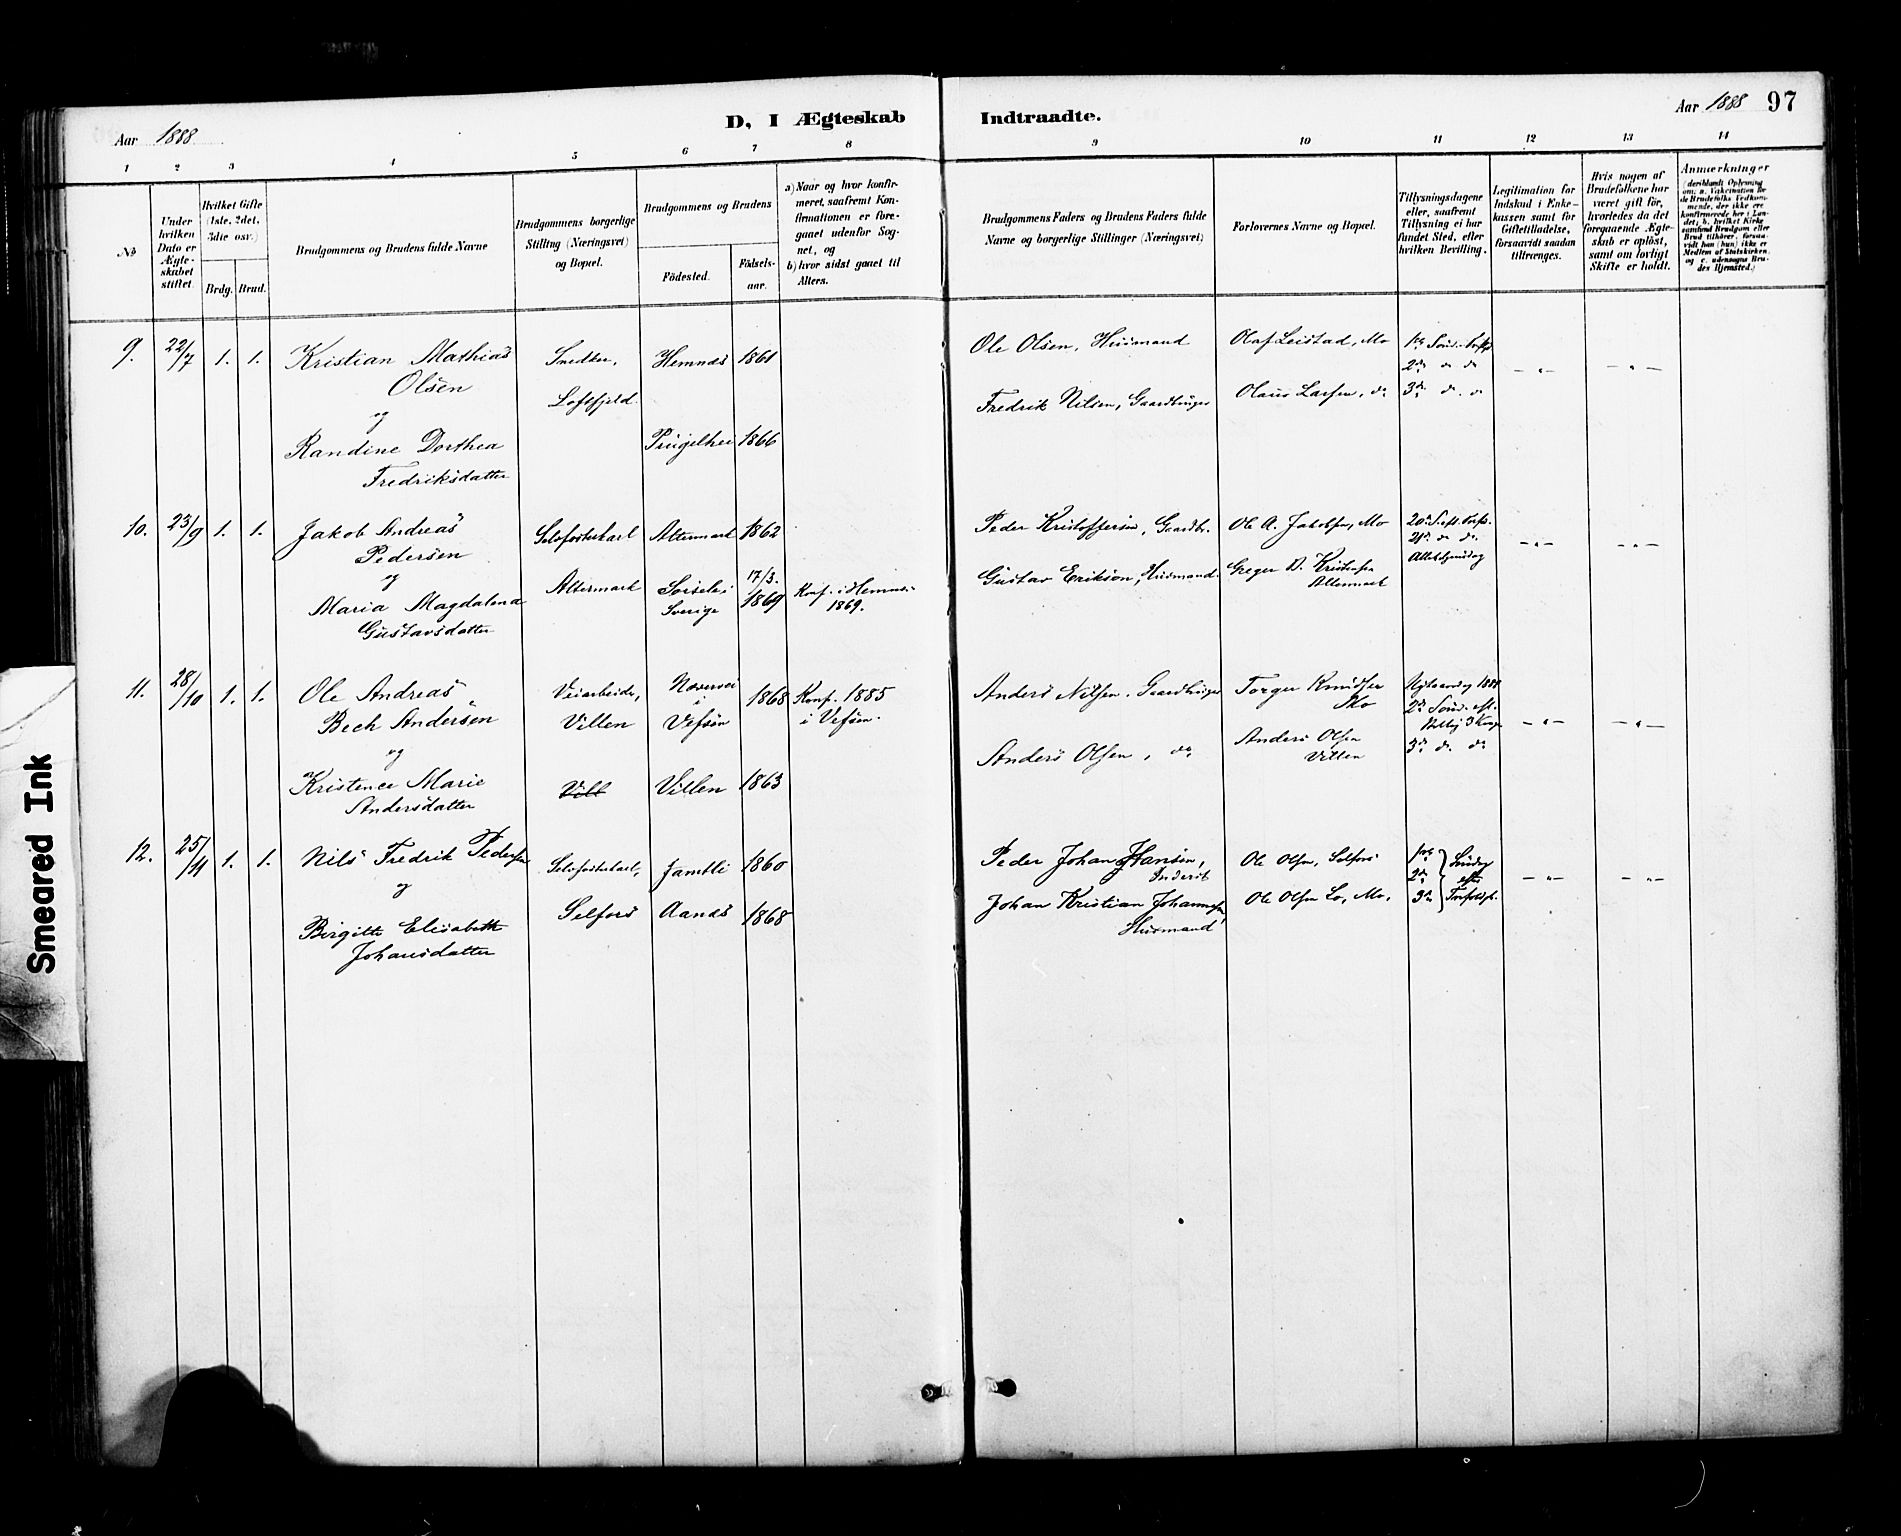 Aar 1888
D, I Ægteskab Indtraadte.
Aar 1888 97
1 2 3 4 5 6 7 8 9 10 11 12 13 14
No
Under hvilken Dato er Ægteskabet stiftet.
Hvilket Gifte (1ste, 2det, 3die osv.)
Brdg. Brud.
Brudgommens og Brudens fulde Navne
Brudgommens borgerlige Stilling (Næringsvei) og Bopæl.
Brudgommens og Brudens
Födested.
Födselsaar.
a) Naar og hvor konfirmeret, saafremt Konfirmationen er foregaaet udenfor Sognet, og
b) hvor sidst gaaet til Alters.
Brudgommens Faders og Brudens Faders fulde Navne og borgerlige Stillinger (Næringsvei)
Forlovernes Navne og Bopæl.
Tillysningsdagene eller, saafremt Tillysning ei har fundet Sted, efter hvilken Bevilling.
Legitimation for Indskud i Enkekassen samt for Giftetilladelse, forsaavidt saadan tiltrænges.
Hvis nogen af Brudefolkene har været gift för, hvorledes da det foregaaende Ægteskab er oplöst, samt om lovligt Skifte er holdt.
Anmærkninger
9. 22/7 1. 1.
Kristian Mathias
Olsen
og
Randine Dorthea
Fredriksdatter
Snedker,
Loftfjeld.
Hemnæs 1861
1866
Ole Olsen, Husmand
Fredrik Nilsen, Gaardbruger
Olaf Leistad, Mo
Olaus Larsen, do
1ste
2den do do
3die do. do
- " -
- " -
10. 23/9 1. 1.
Jakob Andreas
Pedersen
og
Maria Magdalena
Gustavsdatter
Selvfosterkarl
Altermark
Altermark 1862
Sorsele i
Sverige
17/3.
1869
Konf. i Hemnes
1869.
Peder Kristoffersen, Gaardbr.
Gustav Erikson, Husmand.
Ole A. Jakobsen, Mo
Greger D. Kristensen
Altermark
- " -
- " -
11. 28/10 1. 1.
Ole Andreas
Bech Andersen
og
Kristence Marie
Andersdatter
Veiarbeider,
Villen
Vill
i
Vefsen
1868
Villen 1863
Konf. 1885
i Vefsen.
Anders Nilsen, Gaardbruger
Anders Olsen, do
Torger Knudsen
Mo
Anders Olsen
Villen
3die do. do
- " -
- " -
12. 25/11 1. 1.
Nils Fredrik Pedersen
og
Birgitte Elisabeth
Johansdatter
Selvfosterkarl,
Selfors
Jamtli 1860
Aanæs 1868
Peder Johan Hansen,
Inderst
Johan Kristian Johannesen,
Husmand
Ole Olsen, Selfors
Ole Olsen Lo, Mo.
1ste
2den
3die
Söndag
efter
- " -
- " -
Smeared Ink